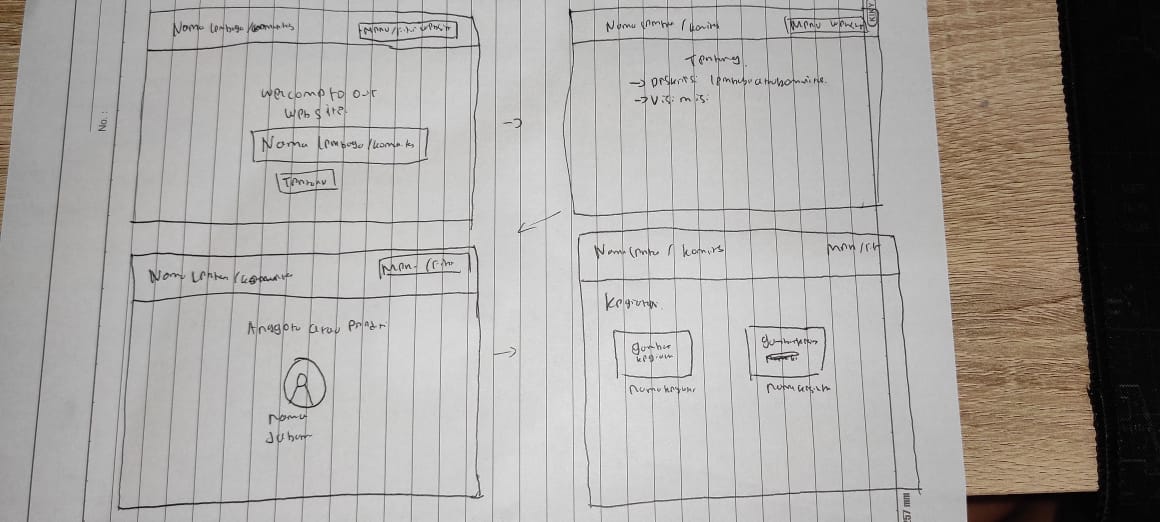 No.:
Nama Lembaga/komunitas
Menu/fitur website
welcome to our
website
Nama Lembaga/komunitas
Tentang
Nama Lembaga / komunitas
Menu website
KIKY
Tentang
→ Deskripsi lembaga atau komunitas
→ Visi misi
Nama Lembaga / komunitas
Menu / fitur
Anggota atau
Nama
Jabatan
Nama Lembaga / komunitas
Menu / fitur
Kegiatan
gambar
kegiatan
gambar
nama kegiatan
nama kegiatan
57 mm